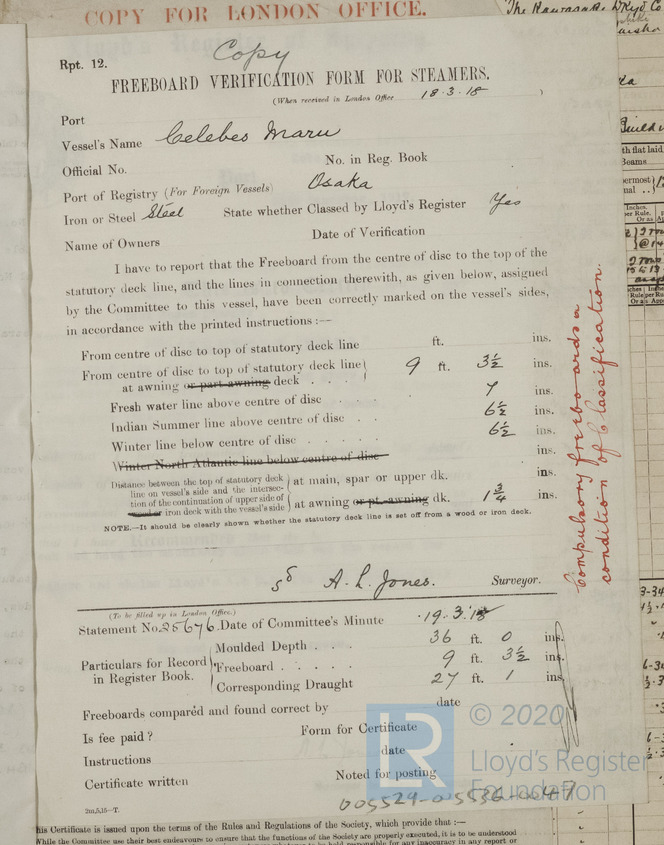 COPY FOR LONDON OFFICE.
The Kawasaki Dkyd Co
Copy
Rpt. 12.
FREEBOARD VERIFICATION FORM FOR STEAMERS.
(When received in London Office 18.3.18 )
Port
Vessel's Name Celebes Maru
Official No. No. in Reg. Book
Port of Registry (For Foreign Vessels) Osaka
Iron or Steel Steel State whether Classed by Lloyd's Register Yes
Name of Owners Date of Verification
I have to report that the Freeboard from the centre of disc to the top of the
statutory deck line, and the lines in connection therewith, as given below, assigned
by the Committee to this vessel, have been correctly marked on the vessel's sides,
in accordance with the printed instructions :—
From centre of disc to top of statutory deck line ft. ins.
From centre of disc to top of statutory deck line } 9 ft. 3½ ins.
at awning or part awning deck . . . .
Fresh water line above centre of disc . . . 7 ins.
Indian Summer line above centre of disc . . 6½ ins.
Winter line below centre of disc . . . . . 6½ ins.
Winter North Atlantic line below centre of disc ins.
Distance between the top of statutory deck
line on vessel's side and the intersec-
tion of the continuation of upper side of
wood or iron deck with the vessel's side
at main, spar or upper dk. ins.
at awning or pt. awning dk. 1¾ ins.
NOTE.—It should be clearly shown whether the statutory deck line is set off from a wood or iron deck.
Compulsory freeboards a
condition of Classification.
sd A. L. Jones. Surveyor.
(To be filled up in London Office.)
Statement No. 25676. Date of Committee's Minute 19.3.18
Particulars for Record
in Register Book.
Moulded Depth . . . 36 ft. 0 ins.
Freeboard . . . . . 9 ft. 3½ ins.
Corresponding Draught 27 ft. 1 ins.
Freeboards compared and found correct by date
Is fee paid ? Form for Certificate
Instructions date
Certificate written Noted for posting
2m,5,15—T.
© 2020
LR
Lloyd's Register
Foundation
005529-005536-0047
his Certificate is issued upon the terms of the Rules and Regulations of the Society, which provide that :—
While the Committee use their best endeavours to ensure that the functions of the Society are properly executed, it is to be understood